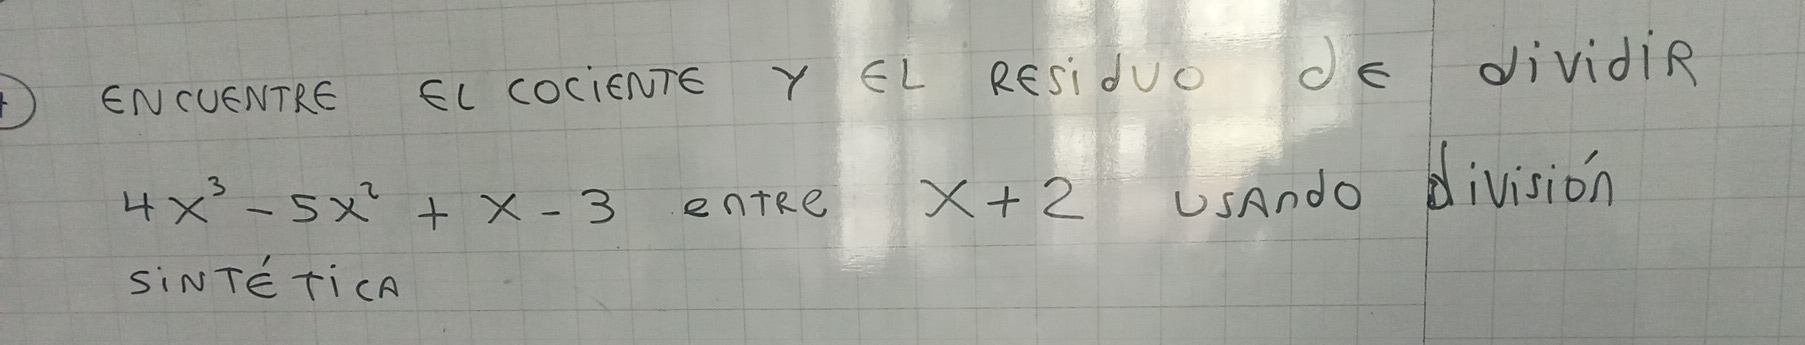 ENCUENTRE EL COCIENTE Y EL RESIDUO DE dividiR
4x³ - 5x² + x - 3 entRE x + 2 USANdO división
SINTÉTICA